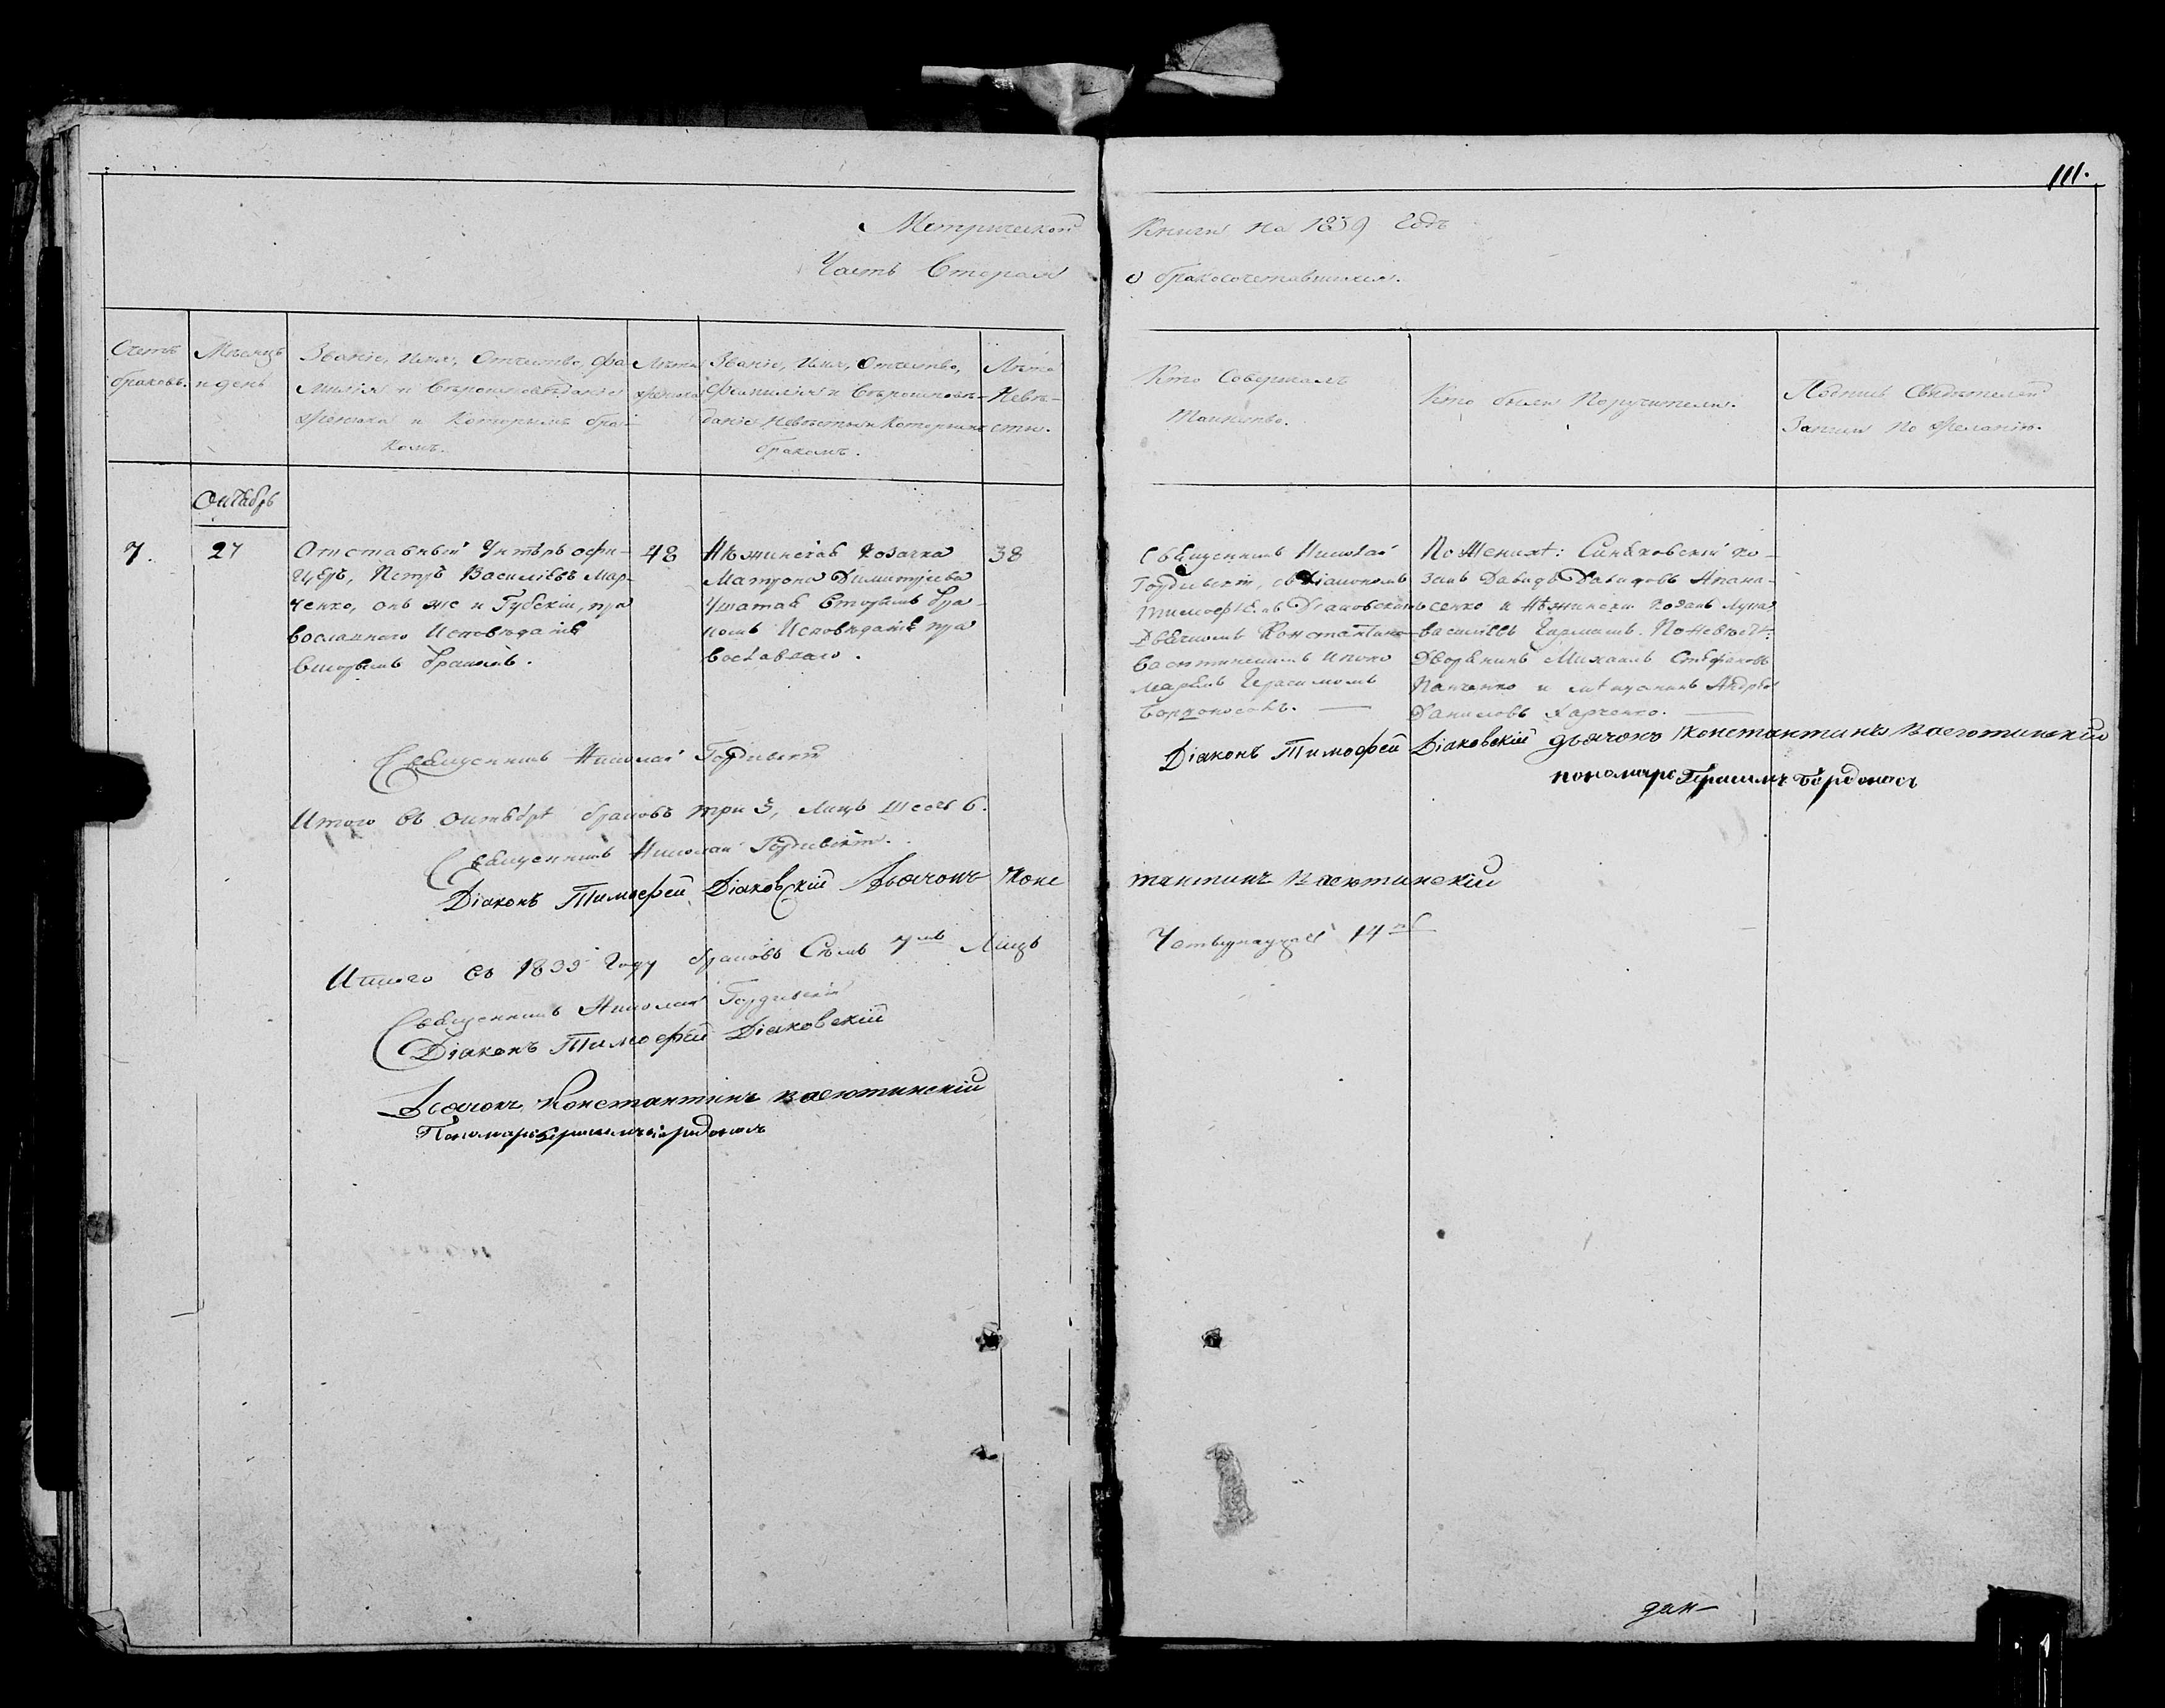 111.
Метрической Книги на 1839 годъ
Часть Вторая о бракосочетавшихся.
Счетъ браковъ.
Мѣсяцъ и день
Званіе, имя, отчество, фа-
милія и вѣроисповѣданіе
жениха и которымъ бра-
комъ.
Лѣта жениха
Званіе, имя, отчество,
фамилія и вѣроисповѣ-
даніе невѣсты и которымъ
бракомъ.
Лѣта
Невѣ-
сты.
Кто совершалъ
Таинство.
Кто были поручители.
Подпись свидѣтелей
записи по желанію.
Октябрь
7.
27
Отставный Унтеръ офи-
церъ, Петръ Василіевъ Мар-
ченко, онъ же и Губскій, пра
вославнаго исповѣданія
вторымъ бракомъ.
48
Нѣжинская козачка
Матрона Димитріева
вторымъ бра-
комъ исповѣданія пра
вославнаго.
38
Священникъ Николай
съ Діакономъ
Тимофѣемъ Діаковскимъ
Дьячкомъ Константино
Васютинскимъ и поно
маремъ Герасимомъ
Бордоносомъ.
По женихѣ: Синяковскій ко-
закъ Давидъ Давидовъ Апана-
сенко и Нѣжинскій козакъ Лука
Василіевъ По невѣстѣ:
Дворянинъ Михаилъ Стефановъ
Панченко и мѣщанинъ Андрей
Даниловъ Харченко.
Священникъ Николай
Діаконъ Тимофей Діаковскій дьячокъ Константинъ Васютинскій
пономарь Герасимъ Бордоносъ
Итого въ октябрѣ браковъ три 3, лицъ шесть 6.
Священникъ Николай
Діаконъ Тимофей Діаковскій Дьячокъ Константинъ Васютинскій
Итого въ 1839 году браковъ семь 7мь лицъ Четырнадцать 14ть
Священникъ Николай
Діаконъ Тимофей Діаковскій
Дьячокъ Константинъ Васютинскій
Пономарь Герасимъ Бордоносъ